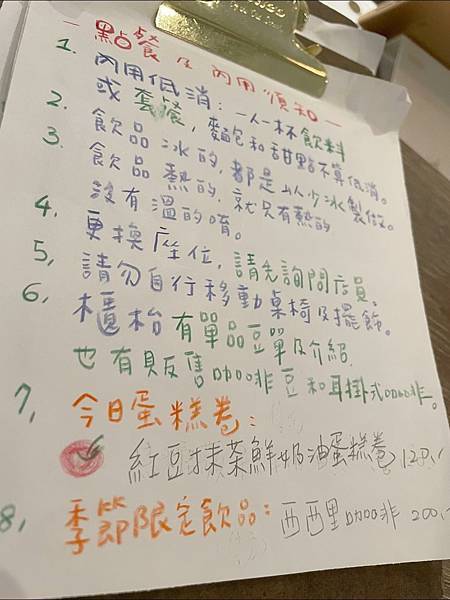 一點餐及內用須知一
1. 內用低消：一人一杯飲料
或套餐，麵包和甜點不算低消。
2. 飲品冰的，都是以少冰製做。
3. 飲品熱的，就只有熱的
沒有溫的唷。
4. 更換座位，請先詢問店員。
5, 請勿自行移動桌椅及擺飾。
6, 櫃枱有單品豆單及介紹，
也有販售咖啡豆和耳掛式咖啡。
7, 今日蛋糕卷：
紅豆抹茶鮮奶油蛋糕卷 120.-
8, 季節限定飲品：西西里咖啡 200.-